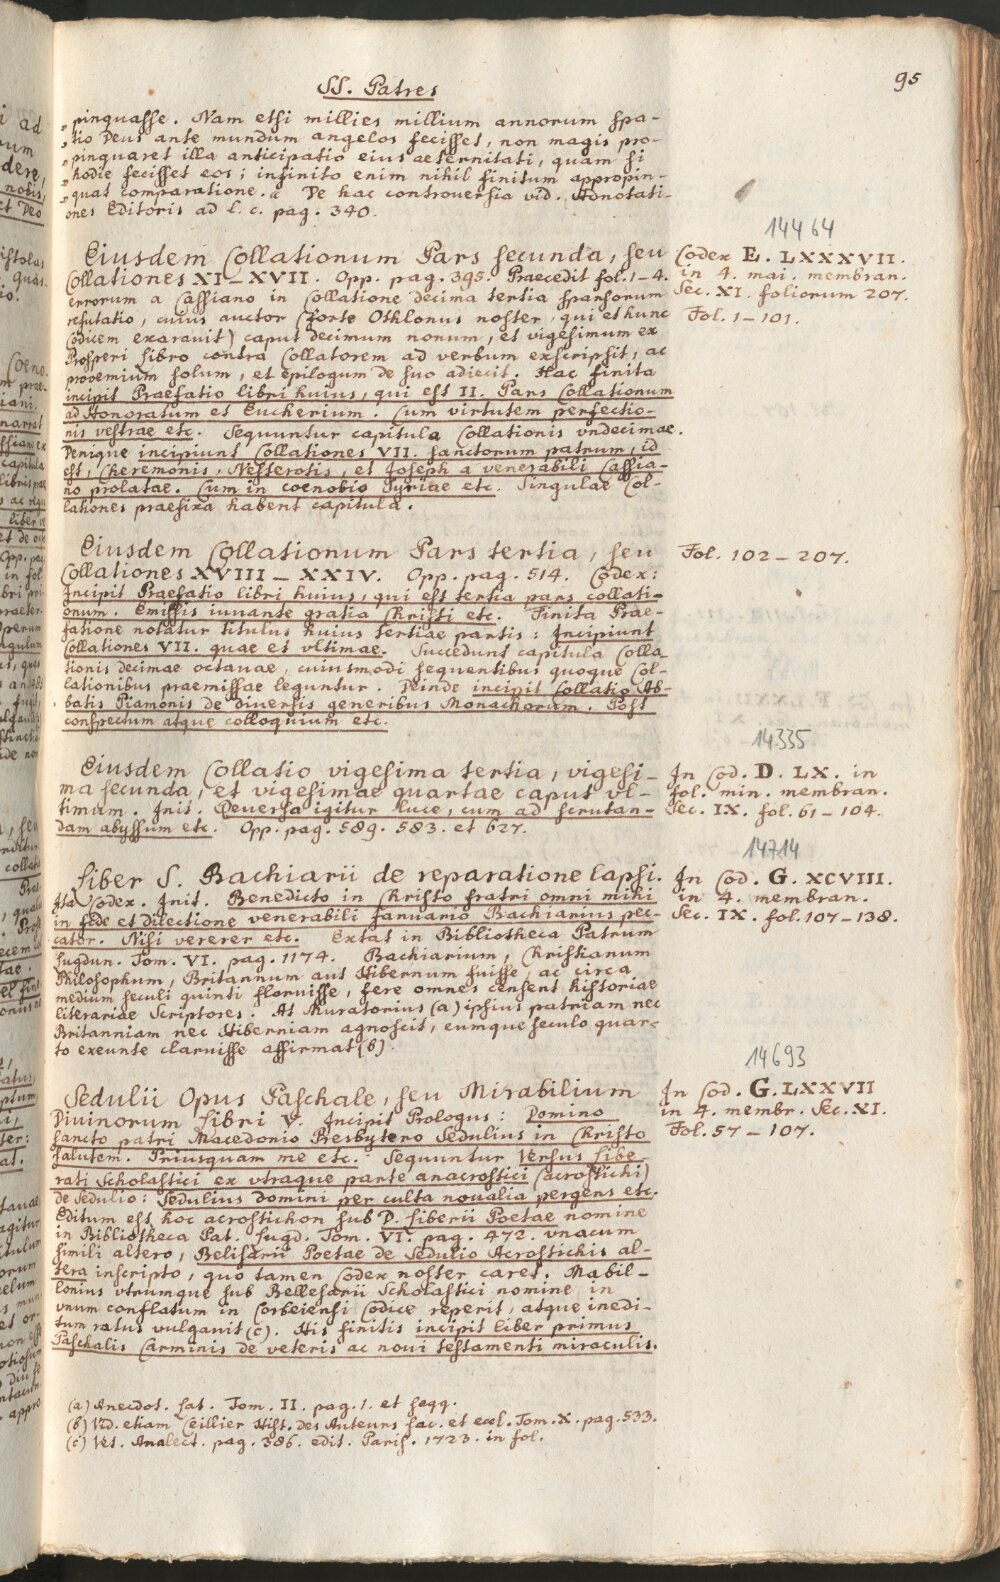 SS. Patres
95
„ pinquasse. Nam etsi millies millium annorum spa-
„ tio Deus ante mundum angelos fecisset, non magis pro-
„ pinquaret illa anticipatio eius aeternitati, quam si
„ hodie fecisset eos; infinito enim nihil finitum appropin-
„ quat comparatione. “ De hac controversia vid. Adnotati-
ones Editoris ad l. c. pag. 340.
14464
Eiusdem Collationum Pars secunda, seu
Codex E. LXXXVII.
Collationes XI–XVII. Opp. pag. 395. Praecedit fol. 1–4.
in 4. mai. membran.
errorum a Cassiano in Collatione decima tertia sparsorum
Sec. XI. foliorum 207.
refutatio, cuius auctor (forte Othlonus noster, qui et hunc
Fol. 1–101.
Codicem exaravit) caput decimum nonum, et vigesimum ex
Prosperi libro contra Collatorem ad verbum exscripsit, ac
prooemium solum, et epilogum de suo adiecit. Hac finita
incipit Praefatio libri huius, qui est II. Pars Collationum
ad Honoratum et Eucherium. Cum virtutem perfectio-
nis vestrae etc. Sequuntur capitula Collationis vndecimae.
Denique incipiunt Collationes VII. sanctorum patrum, id
est, Cheremonis, Nesterotis, et Joseph a venerabili Cassia-
no prolatae. Cum in coenobio Syriae etc. Singulae Col-
lationes praefixa habent capitula.
Eiusdem Collationum Pars tertia, seu
Fol. 102–207.
Collationes XVIII–XXIV. Opp. pag. 514. Codex:
Incipit Praefatio libri huius, qui est tertia pars collati-
onum. Emissis iuvante gratia Christi etc. Finita Prae-
fatione notatur titulus huius tertiae partis: Incipiunt
Collationes VII. quae et vltimae. Succedunt capitula Colla
tionis decimae octavae, cuiusmodi sequentibus quoque Col-
lationibus praemissae leguntur. Deinde incipit Collatio Ab-
batis Piamonis de diversis generibus Monachorum. Post
conspectum atque colloquium etc.
14335
Eiusdem Collatio vigesima tertia, vigesi-
In Cod. D. LX. in
ma secunda, et vigesimae quartae caput vl-
fol. min. membran.
timum. Init. Deuersa igitur luce, cum ad scrutan-
Sec. IX. fol. 61–104.
dam abyssum etc. Opp. pag. 589. 583. et 627.
14714
Liber S. Bachiarii de reparatione lapsi.
In Cod. G. XCVIII.
Ita Codex. Init. Benedicto in Christo fratri omni mihi
in 4. membran.
in fide et dilectione venerabili Januario Bachiarius pec-
Sec. IX. fol. 107–138.
cator. Nisi vererer etc. Extat in Bibliotheca Patrum
Lugdun. Tom. VI. pag. 1174. Bachiarium, Christianum
Philosophum, Britannum aut Hibernum fuisse, ac circa
medium seculi quinti floruisse, fere omnes censent historiae
literariae Scriptores. At Muratorius (a) ipsius patriam nec
Britanniam nec Hiberniam agnoscit, eumque seculo quar-
to exeunte claruisse affirmat (b).
14693
Sedulii Opus Paschale, seu Mirabilium
In Cod. G. LXXVII
Divinorum Libri V. Incipit Prologus: Domino
in 4. membr. Sec. XI.
sancto patri Macedonio Presbytero Sedulius in Christo
Fol. 57–107.
salutem. Priusquam me etc. Sequuntur Versus Libe-
rati Scholastici ex vtraque parte anacrostici (acrostichi)
de Sedulio: Sedulius domini per culta noualia pergens etc.
Editum est hoc acrostichon sub D. Liberii Poetae nomine
in Bibliotheca Pat. Lugd. Tom. VI. pag. 472. vnacum
simili altero, Belisarii Poetae de Sedulio Acrostichis al-
tera inscripto, quo tamen Codex noster caret. Mabil-
lonius vtrumque sub Bellesarii Scholastici nomine in
vnum conflatum in Corbeiensi Codice reperit, atque inedi-
tum ratus vulgauit (c). His finitis incipit liber primus
Paschalis Carminis de veteris ac noui testamenti miraculis.
(a) Anecdot. Lat. Tom. II. pag. 1. et seqq.
(b) Vid. etiam Ceillier Hist. des Auteurs sac. et eccl. Tom. X. pag. 533.
(c) Vet. Analect. pag. 386. edit. Paris. 1723. in fol.